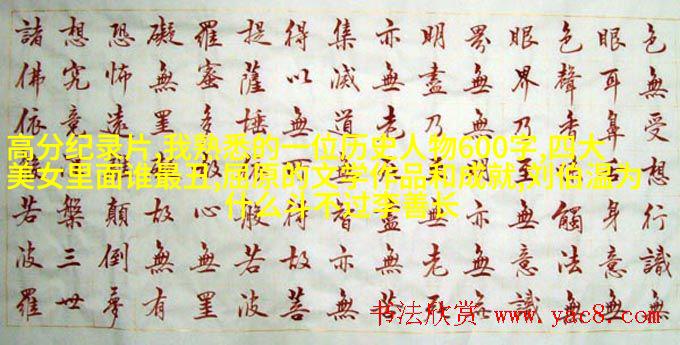 色無受想行識無
眼耳鼻身意無
色聲香觸法無
眼界乃無意識
界無無亦無無
明盡乃無老死
亦無老盡無苦
集滅道智亦無
得以無得故菩
提薩埵般若波
羅蜜多心無罣
礙無罣故無有
恐怖遠顛倒夢
想究竟槃三世
諸佛依若波羅
高分纪录片,我熟悉的一位历史人物600字,四大
美女里面谁最丑,屈原的文学作品和成就,刘伯温为
什么斗不过李善长
书法欣赏 www.yac8.com